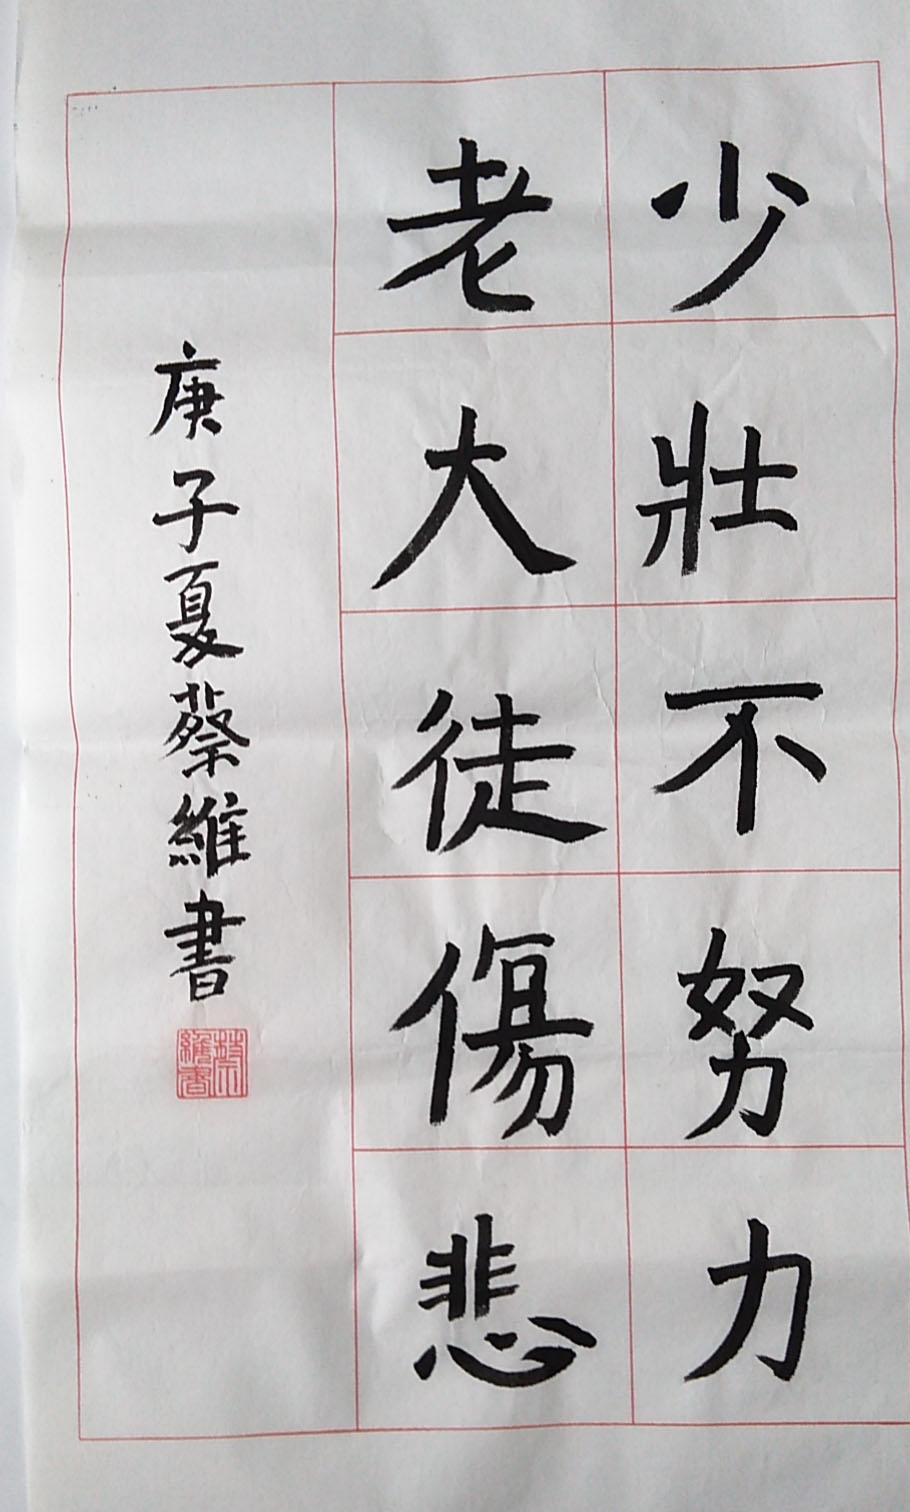 少壯不努力
老大徒傷悲
庚子夏蔡維書
蔡維書